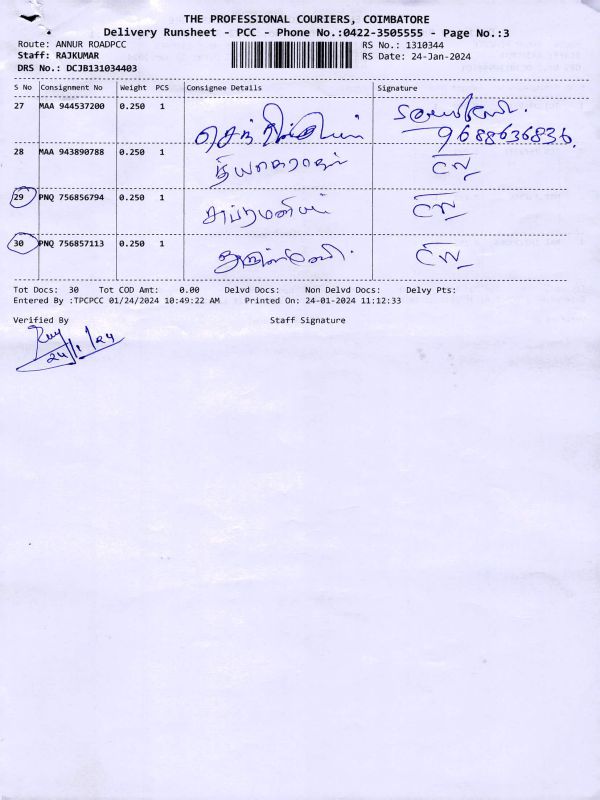 THE PROFESSIONAL COURIERS, COIMBATORE
Delivery Runsheet - PCC - Phone No.:0422-3505555 - Page No.:3
Route: ANNUR ROADPCC RS No.: 1310344
Staff: RAJKUMAR RS Date: 24-Jan-2024
DRS No.: DCJB131034403
S No Consignment No Weight PCS Consignee Details Signature
27 MAA 944537200 0.250 1
9688636836.
28 MAA 943890788 0.250 1 தியாகராஜன்
29 PNQ 756856794 0.250 1
30 PNQ 756857113 0.250 1
Tot Docs: 30 Tot COD Amt: 0.00 Delvd Docs: Non Delvd Docs: Delvy Pts:
Entered By :TPCPCC 01/24/2024 10:49:22 AM Printed On: 24-01-2024 11:12:33
Verified By Staff Signature
24/1/24